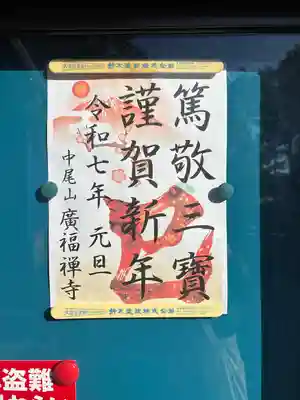 篤敬三寶
謹賀新年
令和七年 元旦
中尾山 廣福禅寺
盗難